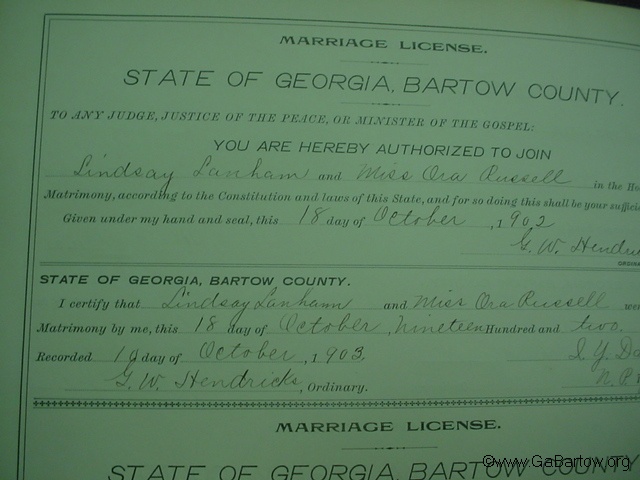 MARRIAGE LICENSE.
STATE OF GEORGIA, BARTOW COUNTY.
TO ANY JUDGE, JUSTICE OF THE PEACE, OR MINISTER OF THE GOSPEL:
YOU ARE HEREBY AUTHORIZED TO JOIN
Lindsay Lanham and Miss Ora Russell in the Ho
Matrimony, according to the Constitution and laws of this State, and for so doing this shall be your suffici
Given under my hand and seal, this 18 day of October , 1902
G. W. Hendri
ORDINA
STATE OF GEORGIA, BARTOW COUNTY.
I certify that Lindsay Lanham and Miss Ora Russell wer
Matrimony by me, this 18 day of October , Nineteen Hundred and two.
Recorded day of October , 1903,
G. W. Hendricks, Ordinary.
N. P.
MARRIAGE LICENSE.
STATE OF GEORGIA, BARTOW COUNTY
©www.GaBartow.org